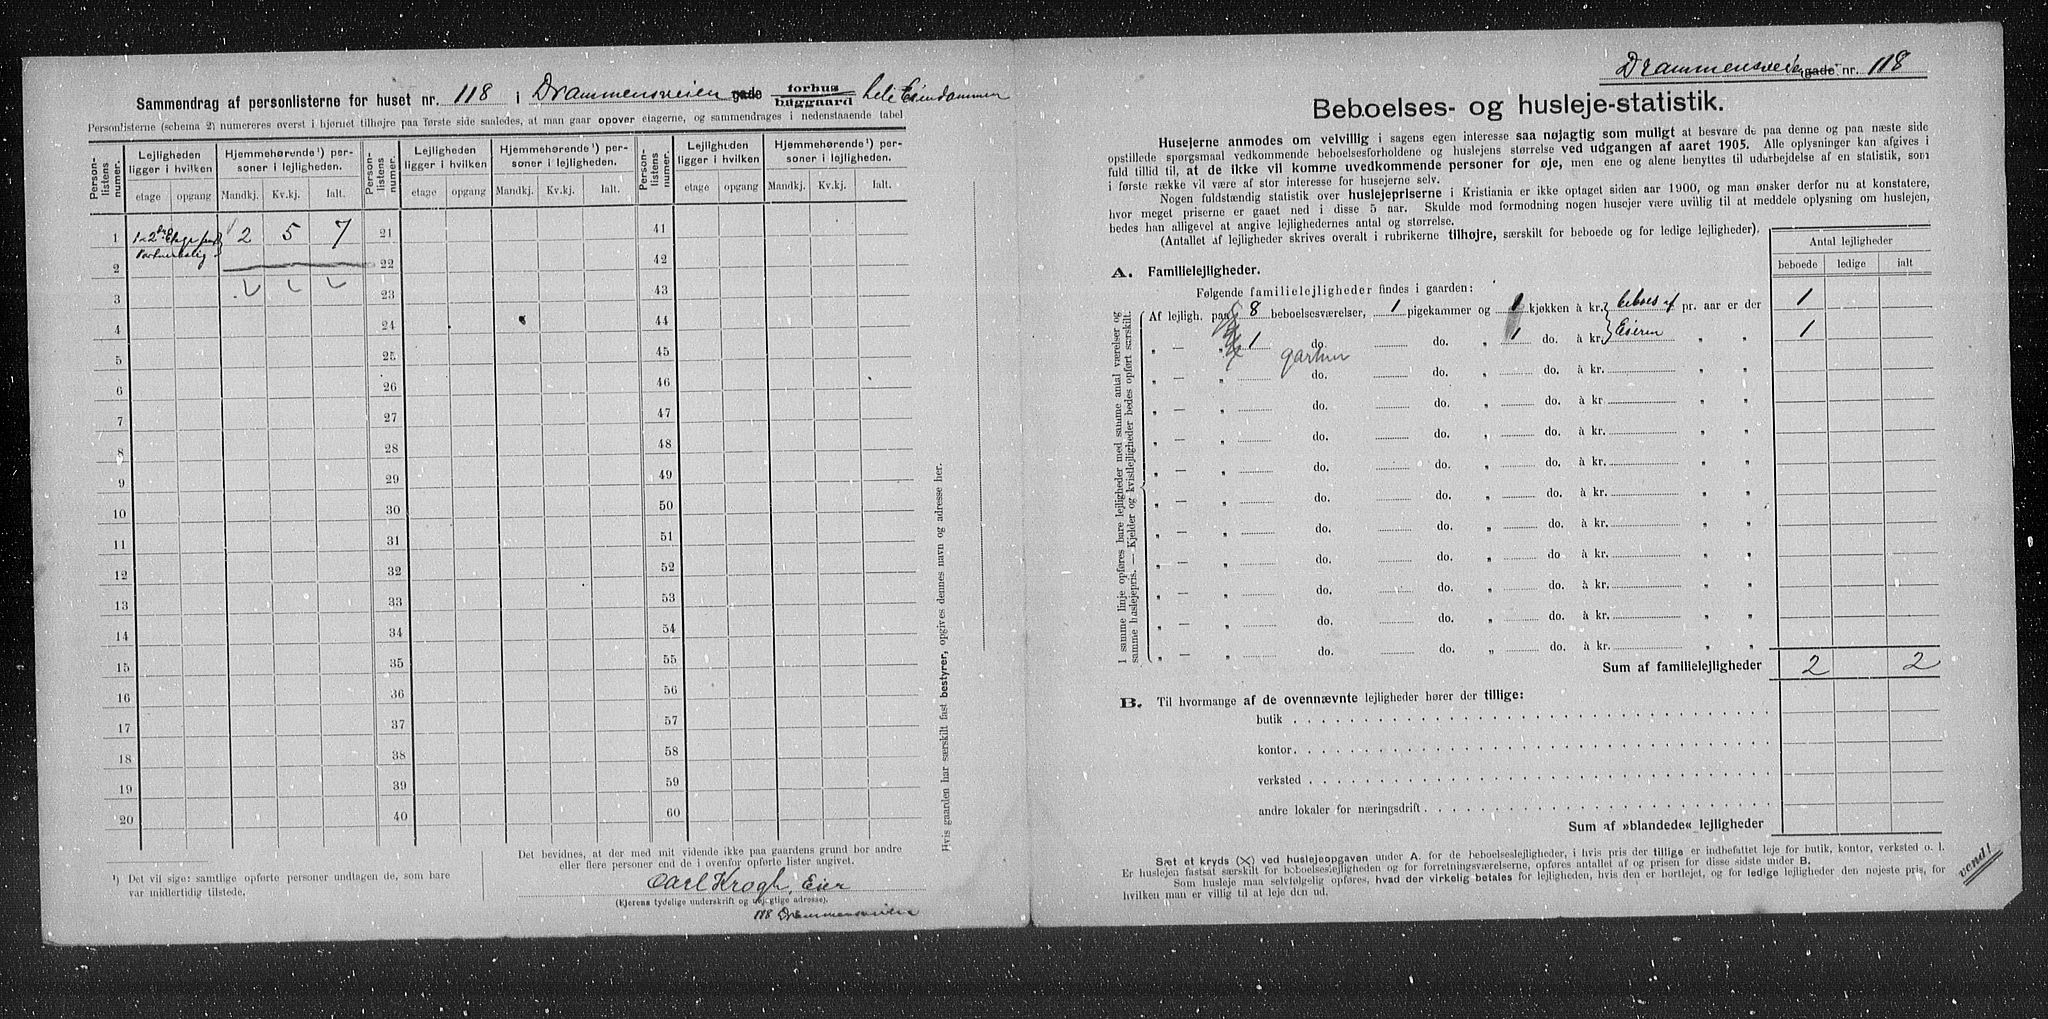 Sammendrag af personlisterne for huset nr. 118 i Drammensveien gade forhus baggaard hele Eiendommen
Personlisterne (schema 2) numereres øverst i hjørnet tilhøjre paa første side saaledes, at man gaar opover etagerne, og sammendrages i nedenstaaende tabel
Person-listens numer. Lejligheden ligger i hvilken Hjemmehørende ¹) personer i lejligheden. Person-listens numer. Lejligheden ligger i hvilken Hjemmehørende ¹) personer i lejligheden. Person-listens numer. Lejligheden ligger i hvilken Hjemmehørende ¹) personer i lejligheden.
etage opgang Mandkj. Kv.kj. Ialt. etage opgang Mandkj. Kv.kj. Ialt. etage opgang Mandkj. Kv.kj. Ialt.
1 1 & 2 Etage 2 5 7 21 41
2 22 42
3 23 43
4 24 44
5 25 45
6 26 46
7 27 47
8 28 48
9 29 49
10 30 50
11 31 51
12 32 52
13 33 53
14 34 54
15 35 55
16 36 56
17 37 57
18 38 58
19 39 59
20 40 60
Hvis gaarden har særskilt fast bestyrer, opgives dennes navn og adresse her.
¹) Det vil sige: samtlige opførte personer undtagen de, som bare
var midlertidig tilstede.
Det bevidnes, at der med mit vidende ikke paa gaardens grund bor andre
eller flere personer end de i ovenfor opførte lister angivet.
Carl Krogh, Eier
(Ejerens tydelige underskrift og nøjagtige adresse).
118 Drammensveien
Drammensveien gade nr. 118
Beboelses- og husleje-statistik.
Husejerne anmodes om velvillig i sagens egen interesse saa nøjagtig som muligt at besvare de paa denne og paa næste side
opstillede spørgsmaal vedkommende beboelsesforholdene og huslejens størrelse ved udgangen af aaret 1905. Alle oplysninger kan afgives i
fuld tillid til, at de ikke vil komme uvedkommende personer for øje, men ene og alene benyttes til udarbejdelse af en statistik, som
i første række vil være af stor interesse for husejerne selv.
Nogen fuldstændig statistik over huslejepriserne i Kristiania er ikke optaget siden aar 1900, og man ønsker derfor nu at konstatere,
hvor meget priserne er gaaet ned i disse 5 aar. Skulde mod formodning nogen husejer være uvillig til at meddele oplysning om huslejen,
bedes han alligevel at angive lejlighedernes antal og størrelse.
(Antallet af lejligheder skrives overalt i rubrikerne tilhøjre, særskilt for beboede og for ledige lejligheder).
Antal lejligheder
beboede ledige ialt
A. Familielejligheder.
Følgende familielejligheder findes i gaarden:
I samme linje opføres bare lejligheder med samme antal værelser og
samme huslejepris. — Kjelder og kvistlejligheder bedes opført særskilt.
Af lejligh. paa 8 beboelsesværelser, 1 pigekammer og 1 kjøkken à kr. beboes af pr. aar er der 1
„ — „ 1 do. do. „ 1 do. à kr. Eieren „ „ 1
gartner
„ — „ do. do. „ do. à kr. „ „
„ — „ do. do. „ do. à kr. „ „
„ — „ do. do. „ do. à kr. „ „
„ — „ do. do. „ do. à kr. „ „
„ — „ do. do. „ do. à kr. „ „
„ — „ do. do. „ do. à kr. „ „
„ — „ do. do. „ do à kr. „ „
„ — „ do. do. „ do. à kr. „ „
„ — „ do. do. „ do. à kr. „ „
„ — „ do. do. „ do. à kr. „ „
Sum af familielejligheder 2 2
B. Til hvormange af de ovennævnte lejligheder hører der tillige:
butik
kontor
verksted
andre lokaler for næringsdrift
Sum af »blandede« lejligheder
Sæt et kryds (×) ved huslejeopgaven under A. for de beboelseslejligheder, i hvis pris der tillige er indbefattet leje for butik, kontor, verksted o. l.
Er huslejen fastsat særskilt for beboelseslejligheden og for forretningsværelserne, opføres antallet af og prisen for disse sidste under B.
Som husleje maa selvfølgelig opføres, hvad der virkelig betales for lejligheden, hvis den er bortlejet, og for ledige lejligheder den nøjeste pris, for
hvilken man er villig til at leje den ud.
vend!